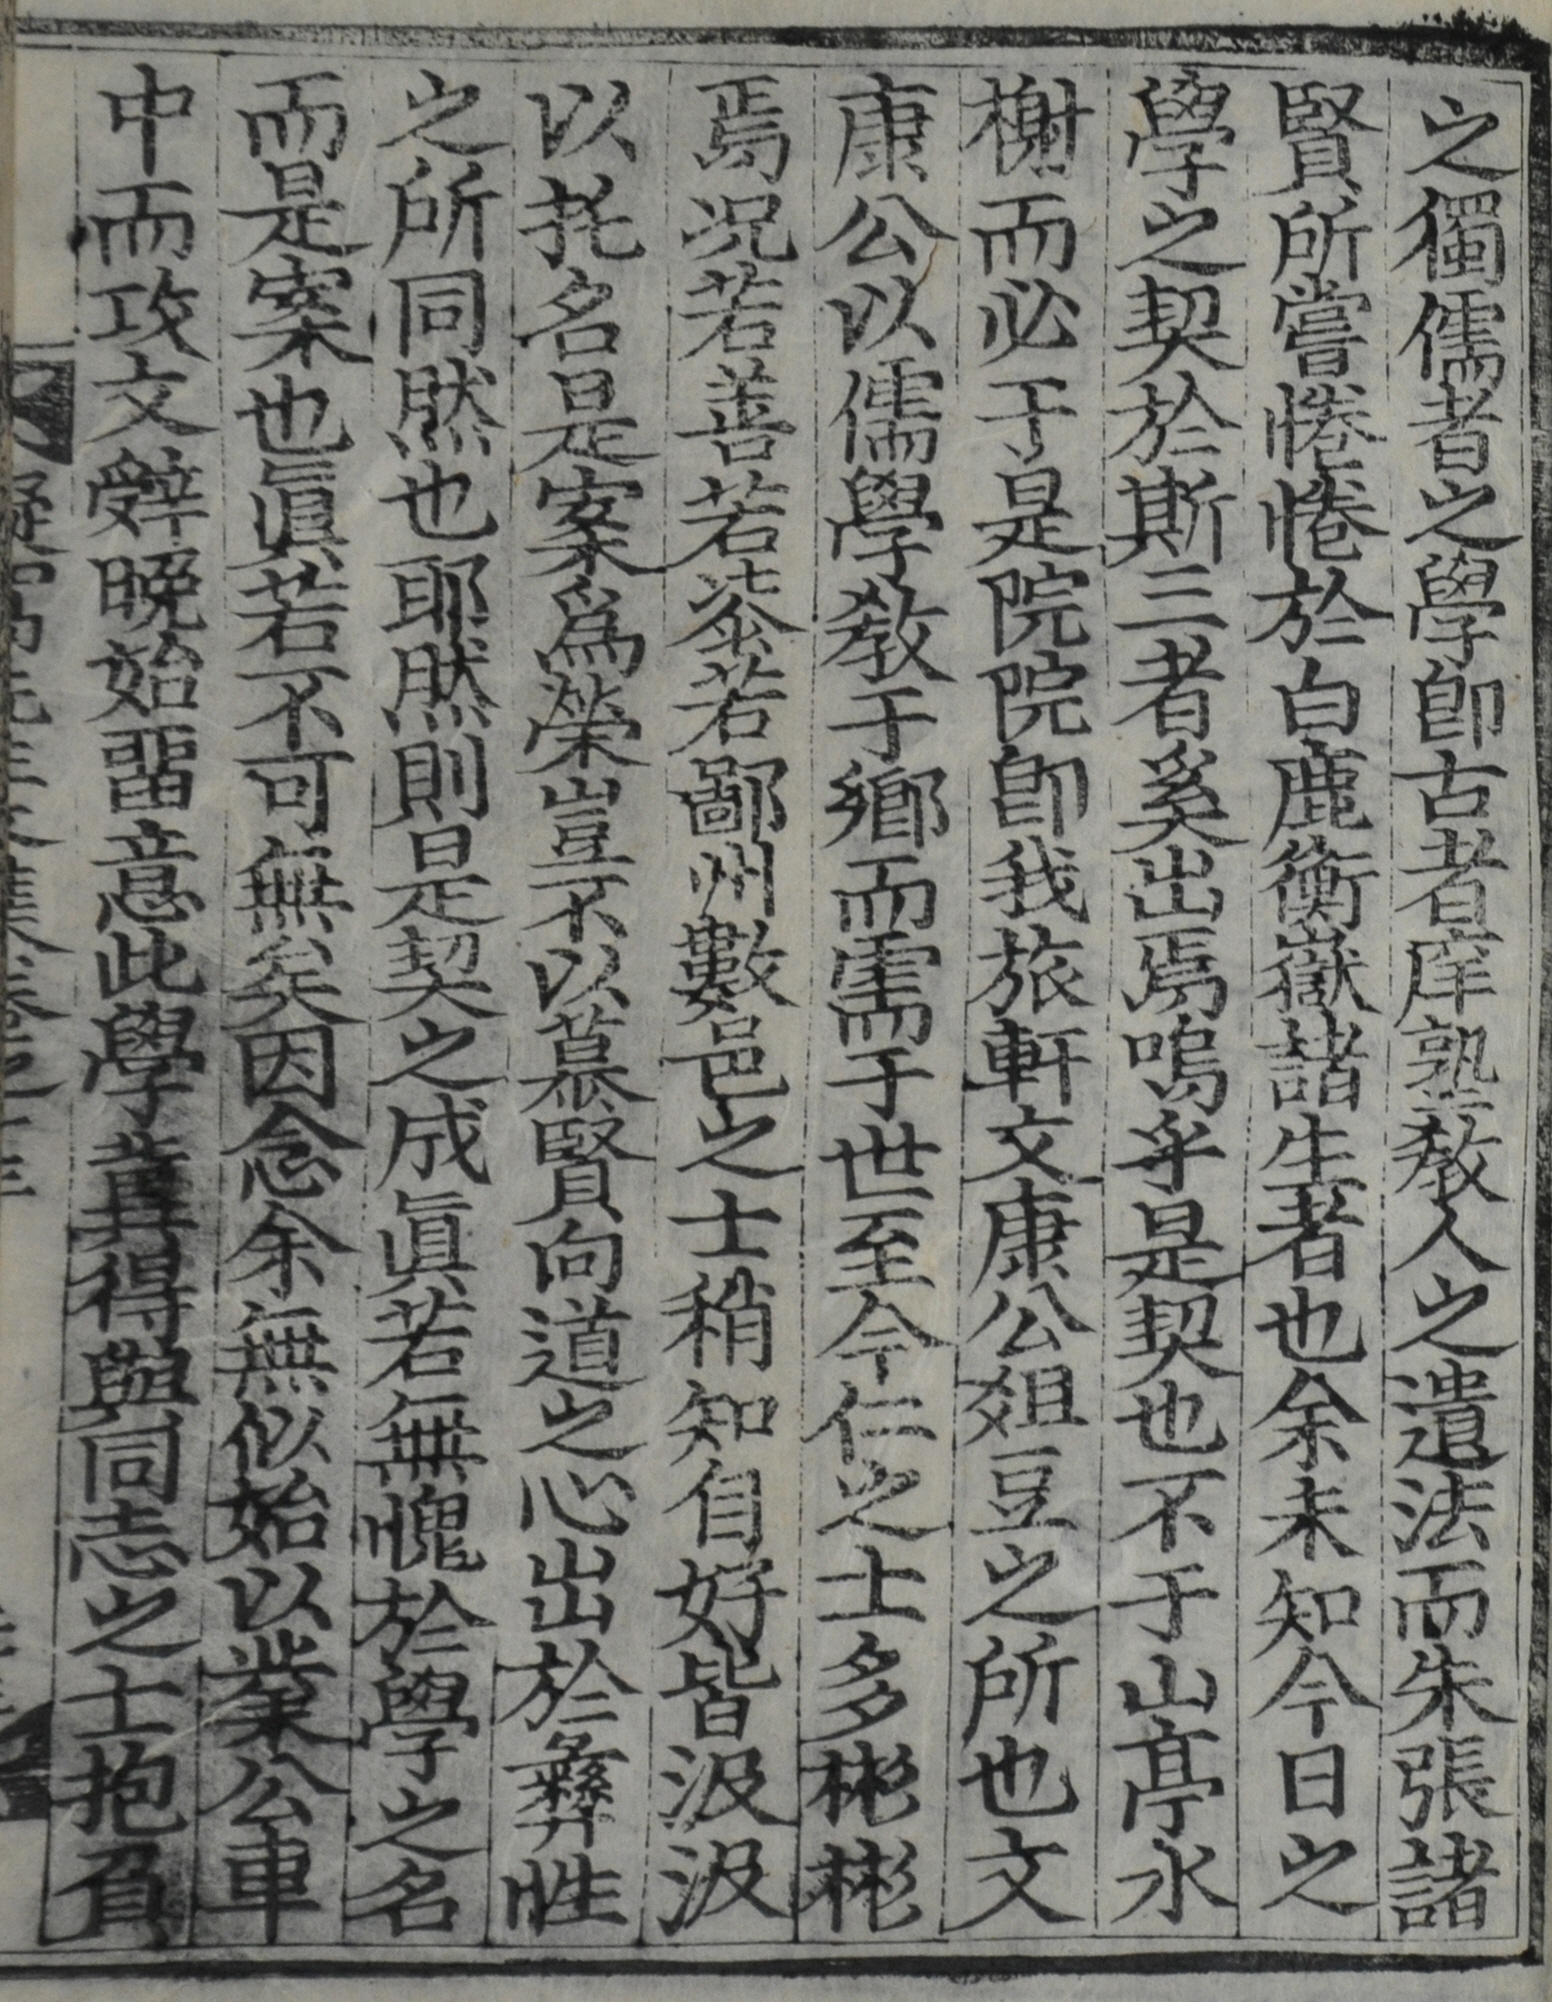 之獨儒者之學卽古者庠塾敎人之遺法而朱張諸
賢所嘗惓惓於白鹿衡嶽諸生者也余未知今日之
學之契於斯三者奚出焉嗚乎是契也不于山亭水
榭而必于是院院卽我旅軒文康公俎豆之所也文
康公以儒學敎于鄕而需于世至今仁之士多彬彬
焉况若善若漆若鄙州數邑之士稍知自好皆汲汲
以托名是案爲榮豈不以慕賢向道之心出於彛性
之所同然也耶然則是契之成眞若無愧於學之名
而是案也眞若不可無矣因念余無似始以業公車
中而攻文辭晩始留意此學冀得與同志之士抱負